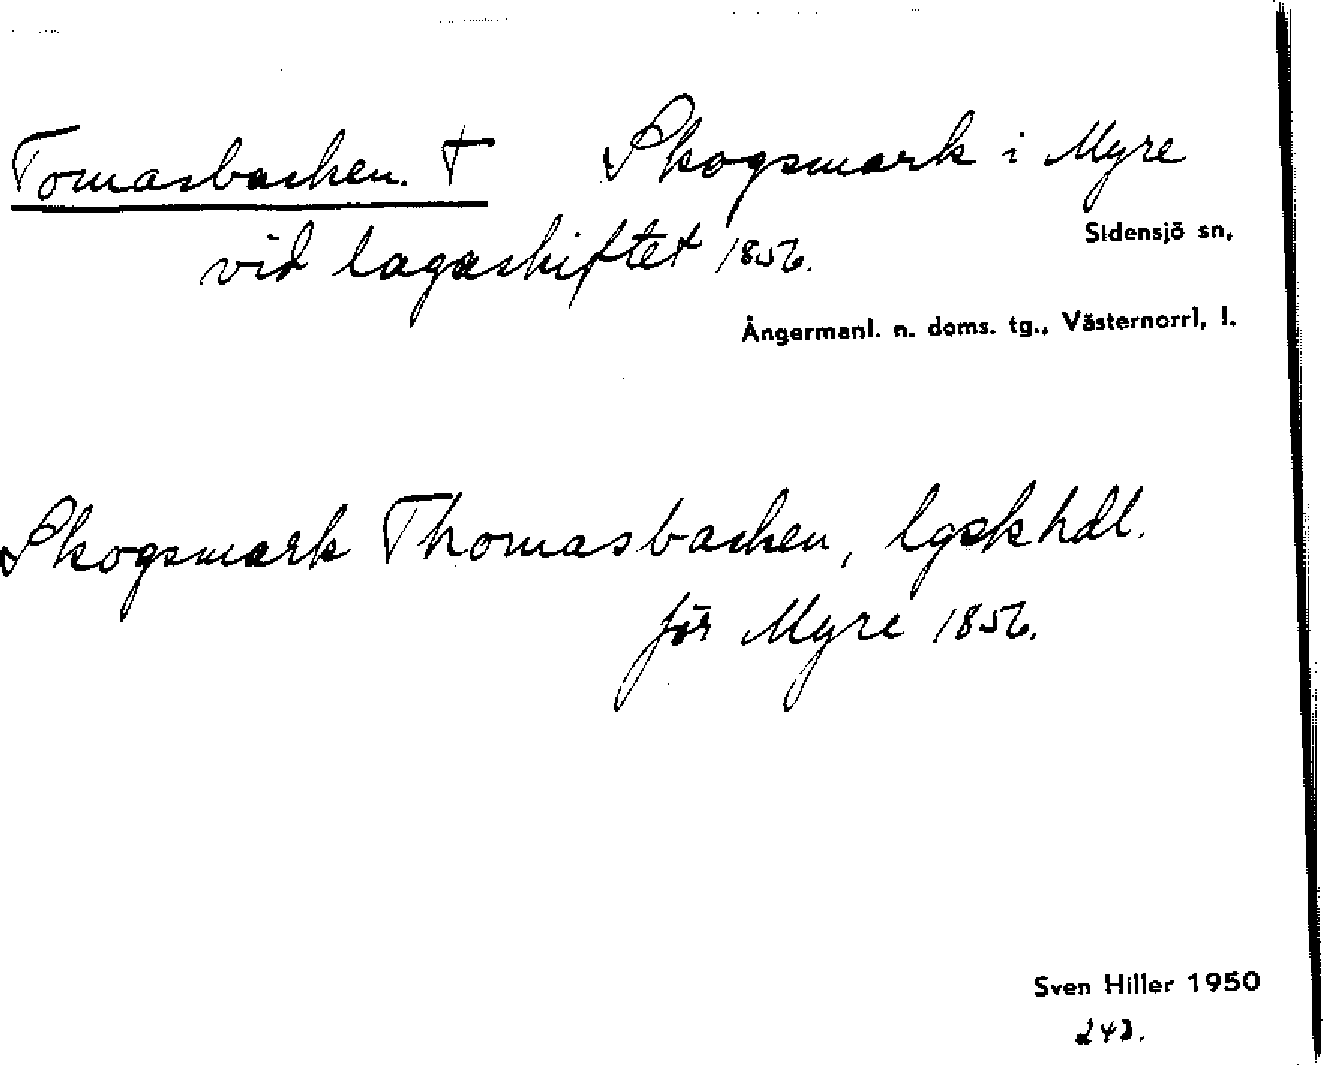 Tomasbacken. † Skogsmark i Myre
Sidensjö sn,
vid lagaskiftet 1856.
Ångermanl. n. doms. tg., Västernorrl, l.
Skogsmark Thomasbacken, lgskhdl.
för Myre 1856.
Sven Hiller 1950
243.